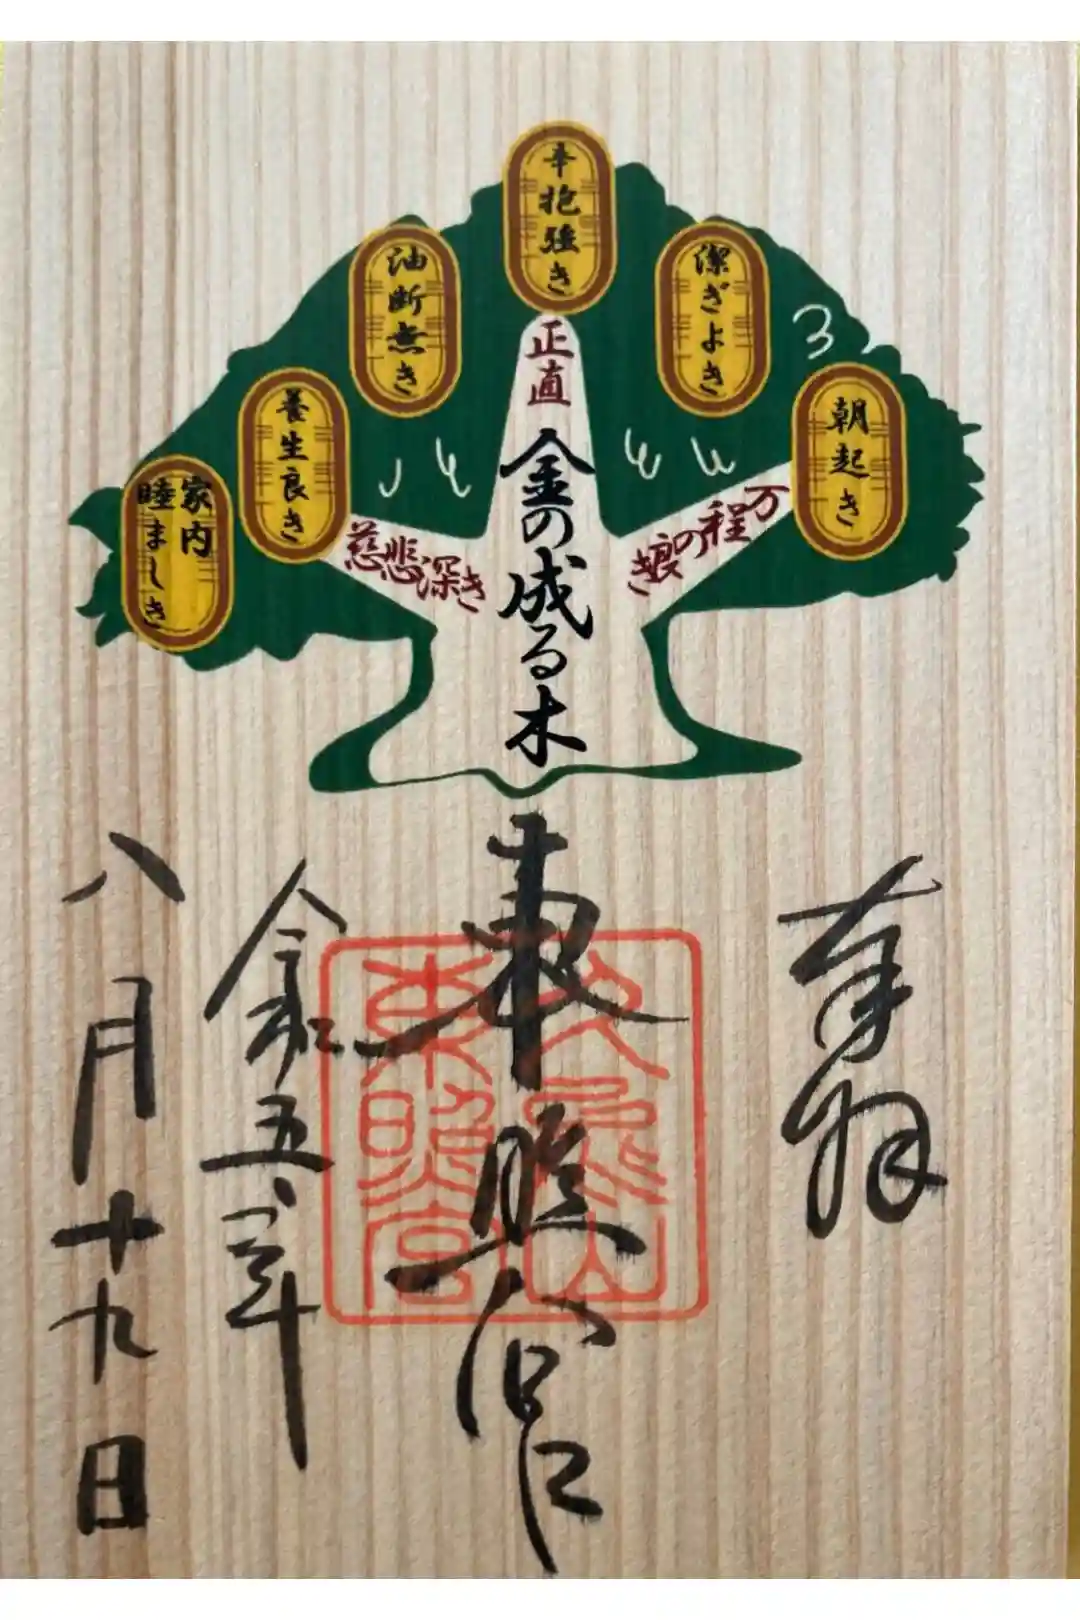 辛抱強き
潔ぎよき
朝起き
油断無き
養生良き
家内
睦ましき
正直
万程の良き
慈悲深き
金の成る木
奉拝
東照宮
久能山
東照宮
令和五年
八月十九日